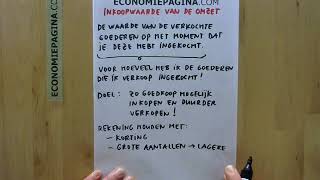 ECONOMIEPAGINA.COM
INKOOPWAARDE VAN DE OMZET
DE WAARDE VAN DE VERKOCHTE
GOEDEREN OP HET MOMENT DAT
JE DEZE HEBT INGEKOCHT.
VOOR HOEVEEL HEB IK DE GOEDEREN
DIE IK VERKOOP INGEKOCHT!
DOEL: ZO GOEDKOOP MOGELIJK
INKOPEN EN DUURDER
VERKOPEN!
REKENING HOUDEN MET:
- KORTING
- GROTE AANTALLEN → LAGERE